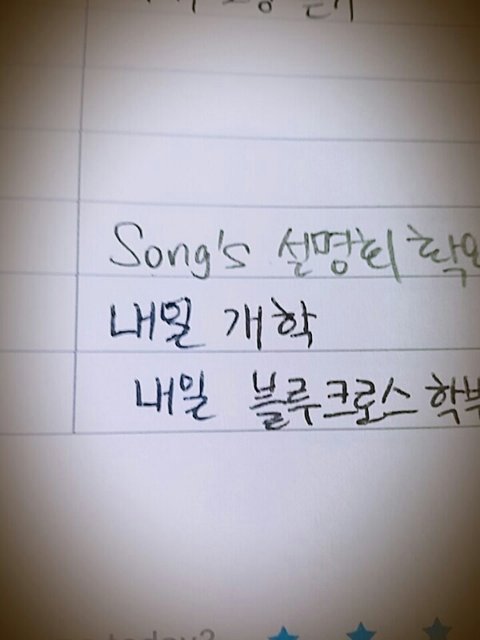 Song's 설명회
내일 개학
내일 블루크로스
today?